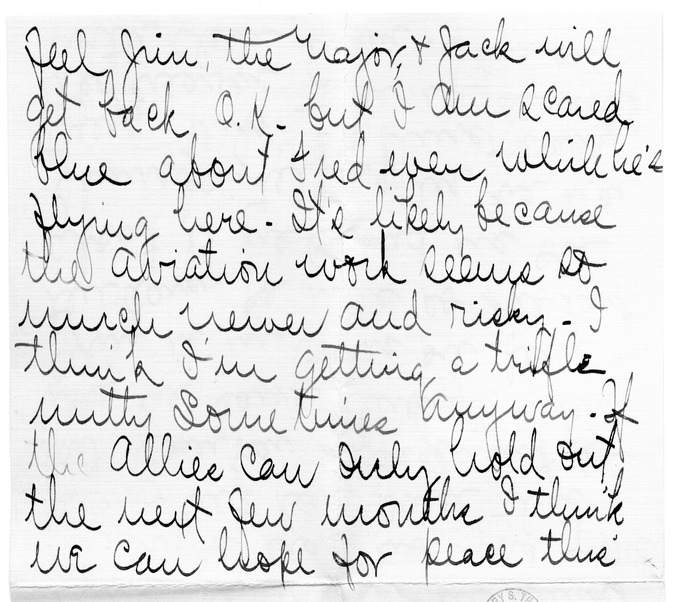 feel Jim, the Major, & Jack will
get back O.K. but I am scared
blue about Fred even while he's
flying here - It's likely because
the aviation work seems so
much newer and risky - I
think I'm getting a trifle
nutty sometimes anyway. If
the Allies can only hold out
the next few months I think
we can hope for peace this
RY S. T